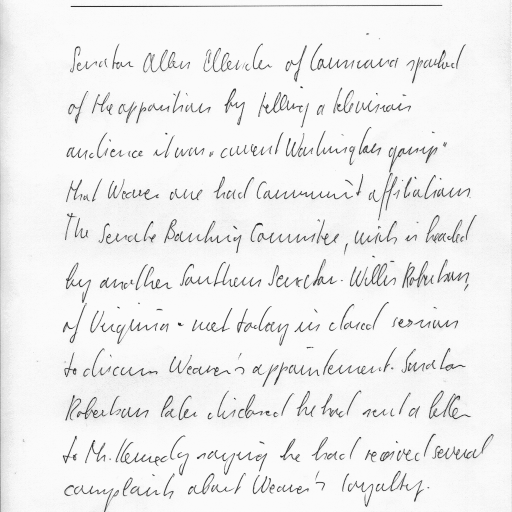 Senator Allen Ellender of Louisiana sparked
of the opposition by telling a television
audience it was "current Washington gossip"
that Weaver one had Communist affiliations
The Senate Banking Committee, wich is headed
by another Southern Senator - Willis Robertson,
of Virginia - met today in closed session
to discuss Weaver's appointement. Senator
Robertson later disclosed he had send a letter
to Mr. Kennedy saying he had received several
complaints about Weaver's loyalty.